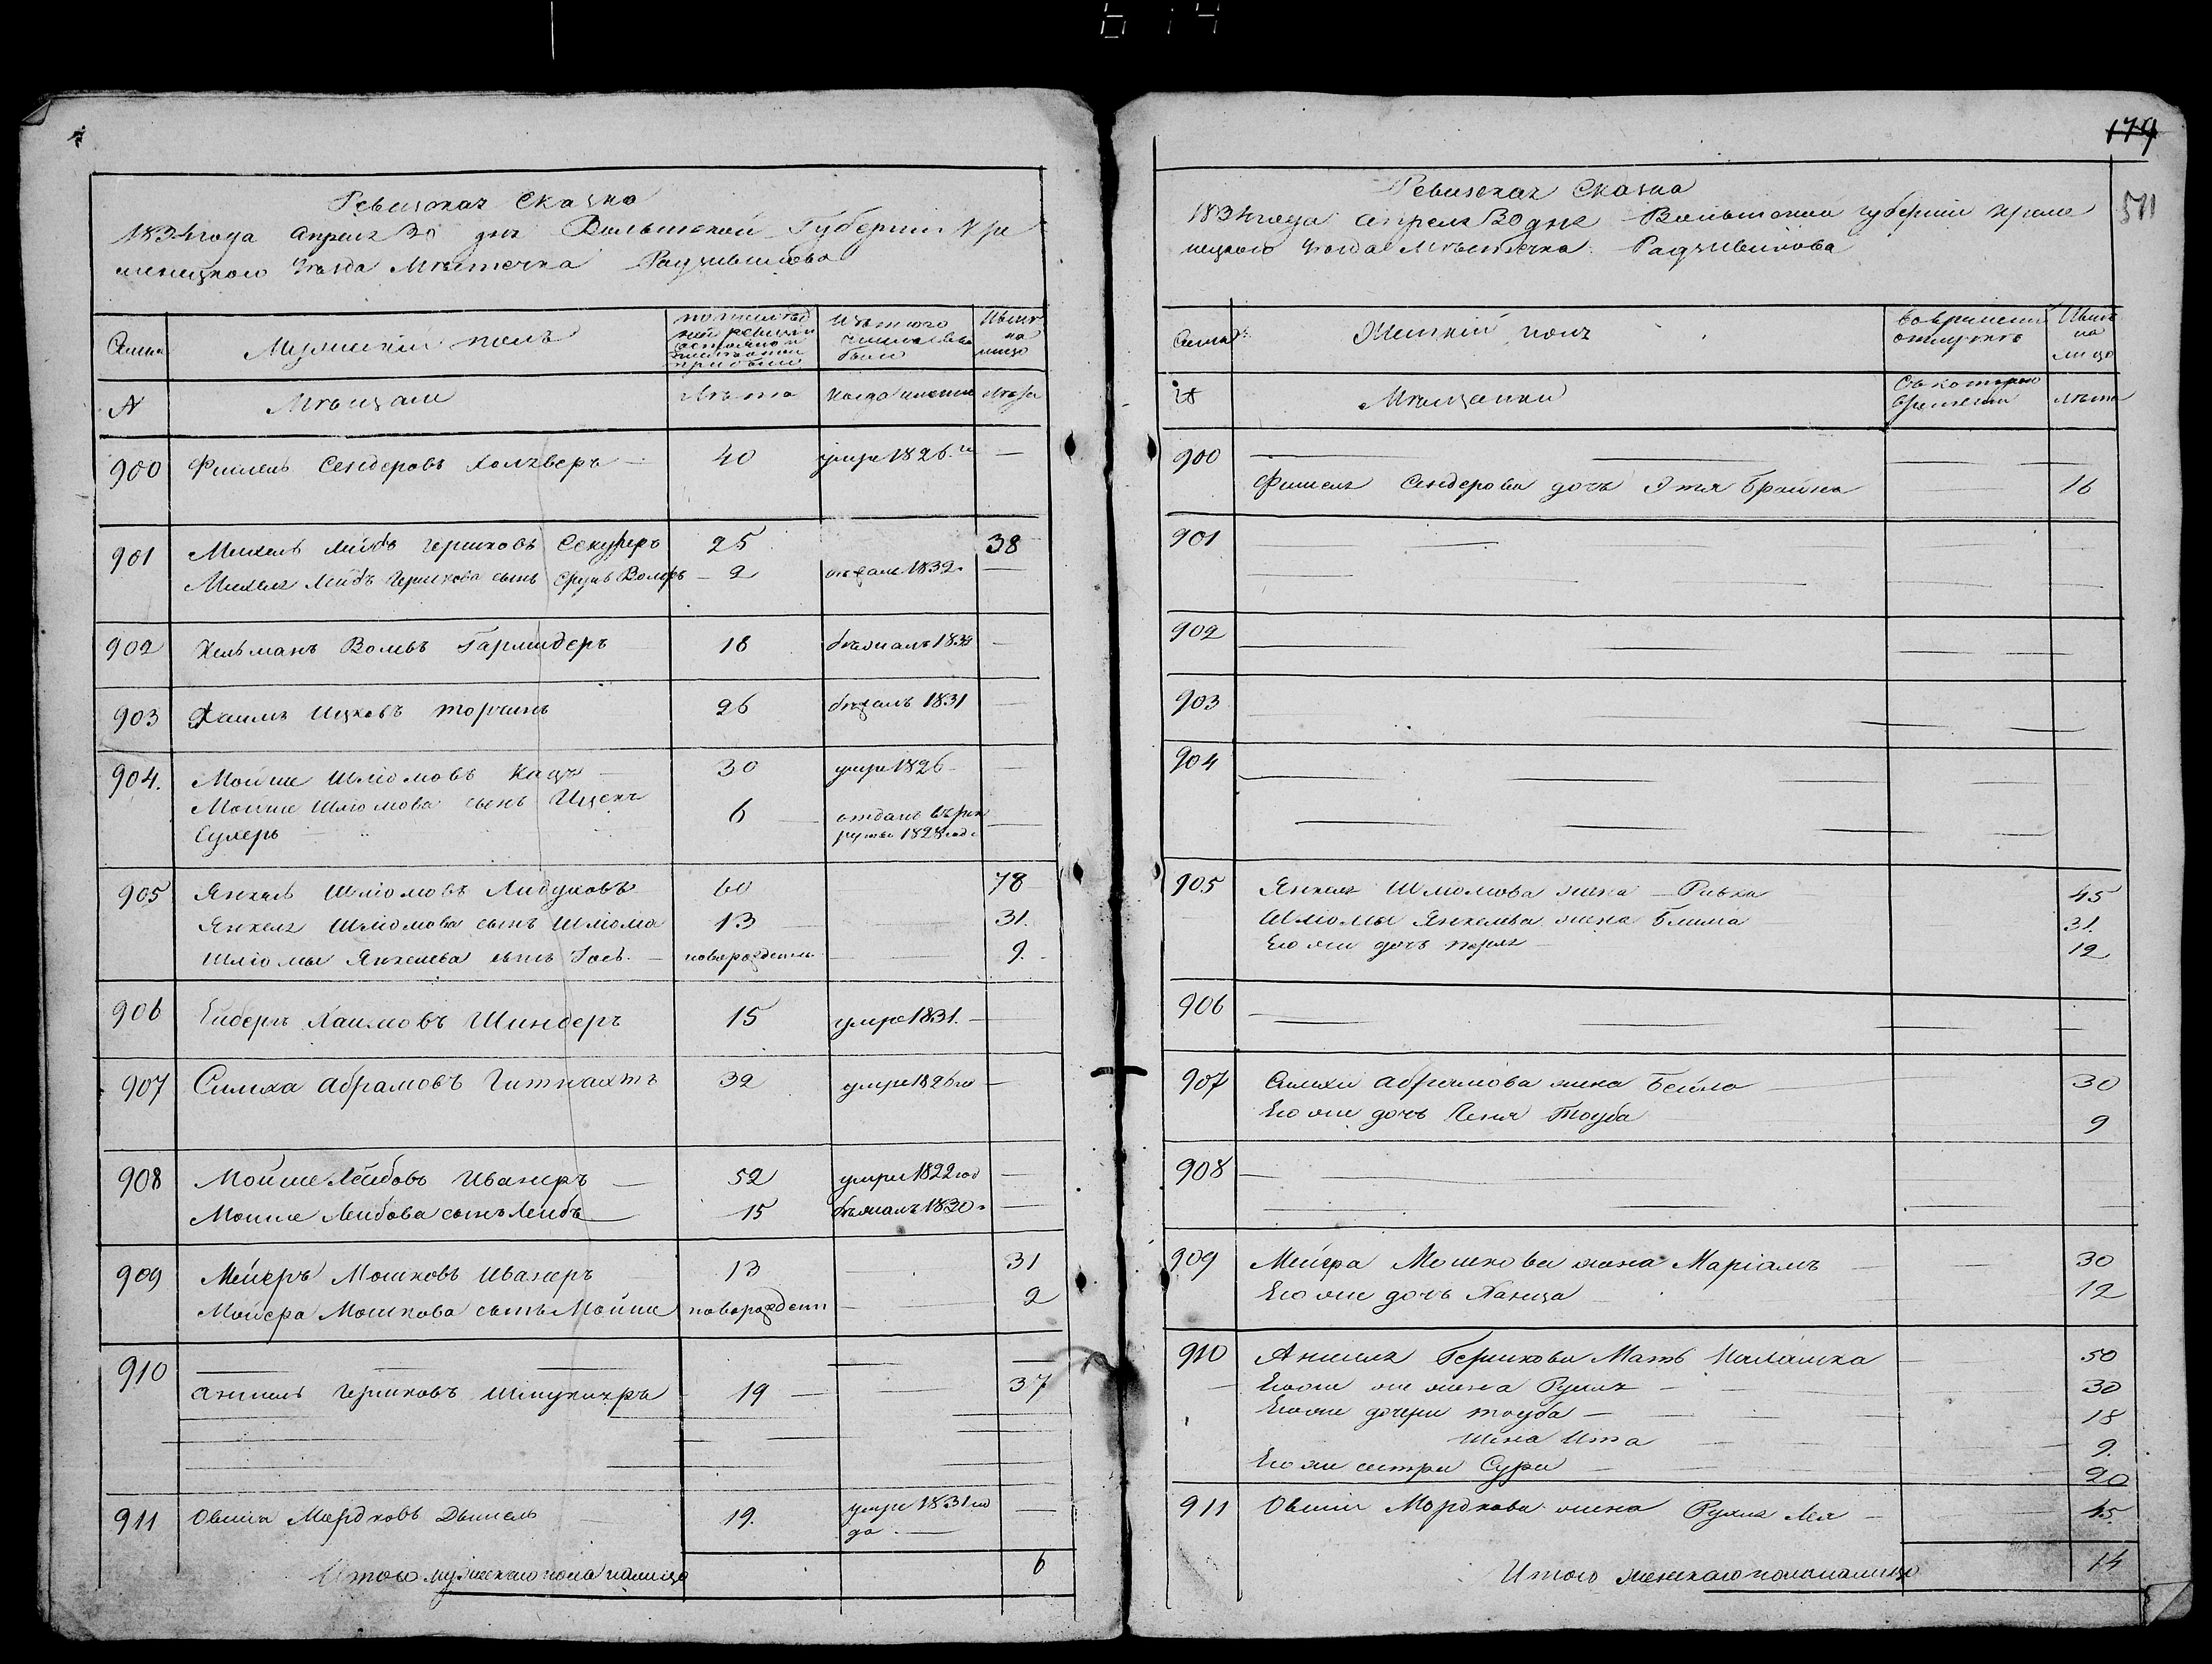 614
Ревизская Сказка
1834 года Апреля 30 дня Волынской Губернии Кре
менецкого Уезда Местечка Радзивилова
Семьи
Мужеский полъ
по последней ревизии состояло и после оной прибыло
Изъ того числа выбыло
Ныне на лицо
N
Мещане
Лета
Когда именно
Лета
900 Фишель Сендеровъ Холчверъ 40 умре 1826 г —
901 Михель Лейбъ Гершковъ Секулеръ 25 38
Михеля Лейбъ Гершкова сынъ Сруль Вольфъ 2 отдан 1832 —
902 Кельманъ Волевъ Гармидеръ 18 бежалъ —
903 Хаимъ Ицковъ Торчинъ 26 бежалъ 1831 —
904. Мойше Шліомовъ Кацъ 30 умре 1826 —
Мойше Шліомова сынъ Ицекъ 6 отданъ въ рек
Сухеръ руты 1828 года
905 Янкель Шліомовъ 60 78
Янкеля Шліомова сынъ Шліома 13 31.
Шліомы Янкелева сынъ Іосъ новорожденъ 9.
906 Хаимовъ Шиндеръ 15 умре 1831.
907 Симха Абрамовъ Гитнахтъ 32 умре 1826 го —
908 Мойше Лейбовъ Иванеръ 52 умре 1822 год —
Мойше Лейбова сынъ Лейбъ 15 бежалъ 1830 —
909 Мейеръ Мошковъ Иванеръ 13 31
Мейера Мошкова сынъ Мойше новорожден 2
910
Аншель Гершковъ Шмуклеръ 19 37
911 Овшия Мордковъ Дышель 19. умре 1831 го
да
Итого мужескаго пола налицо 6
179
511
Ревизская Сказка
1834 года Апреля 30 дня Волынской губернии Креме
нецкого Уезда Местечка Радзивилова
Семьи
Женский полъ
Во временной отлучке
Ныне на лицо
N
Мещанки
Съ которого времени
лета
900
Фишеля Сендерова дочь Этя Брайна 16
901
902
903
904
905 Янкеля Шліомова жена Ривка 45
Шліомы Янкелева жена Блима 31.
Его же дочь Перля 12
906
907 Симхи Абрамова жена Бейла 30
Его же дочь Геня Тауба 9
908
909 Мейера Мошкова жена Маріамъ 30
Его же дочь Ханца 12
910 Аншеля Гершкова Мать Малашка 50
Его же жена Рухля 30
Его же дочери Тауба 18
Шена Ита 9.
Его же сестра Сура 20
911 Овшии Мордкова жена Рухля Лея 45.
Итого женскаго пола налицо 14